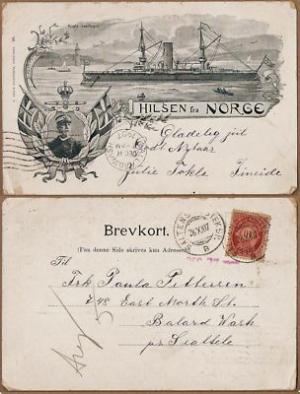 HILSEN fra NORGE
Gladelig Jul
Godt Nytaar
Julie Tokla Fineide
Brevkort.
(Paa denne Side skrives kun Adressen.)
Til
Frk Paula Petterson
748 East North St.
Balard Wash
pr Seattele